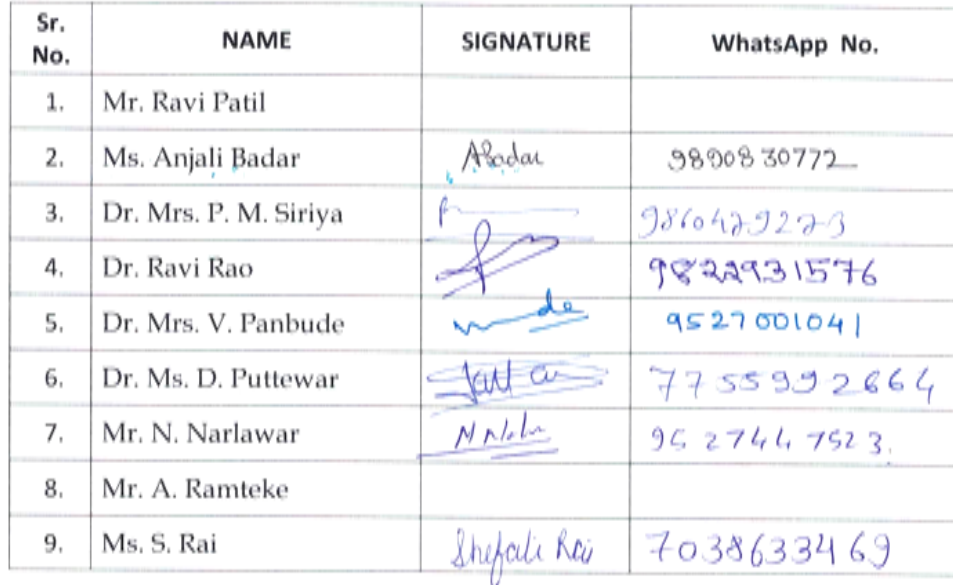 Sr. No. NAME SIGNATURE WhatsApp No.
1. Mr. Ravi Patil
2. Ms. Anjali Badar ABadar 9890830772
3. Dr. Mrs. P. M. Siriya 9860429223
4. Dr. Ravi Rao 9822931576
5. Dr. Mrs. V. Panbude 9527001041
6. Dr. Ms. D. Puttewar 7755992664
7. Mr. N. Narlawar
8. Mr. A. Ramteke
9. Ms. S. Rai Shefali Rai 7038633469